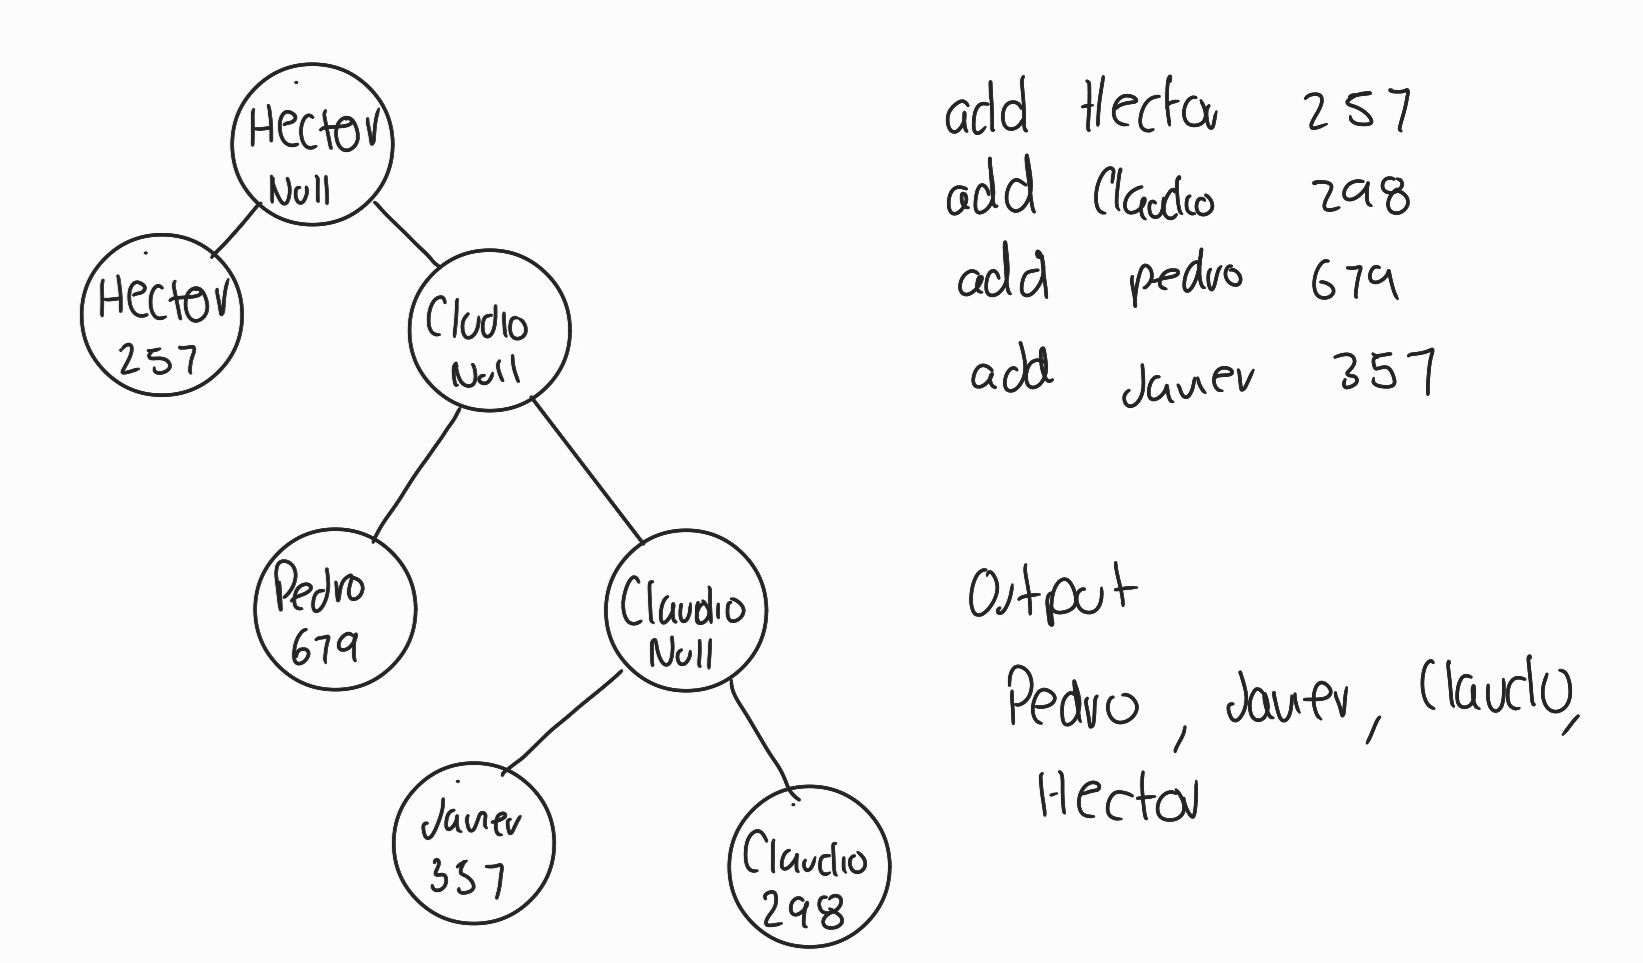 Hector
Null
Hector
257
Cludio
Null
Pedro
679
Claudio
Null
Javier
357
Claudio
298
add Hector 257
add Claudio 298
add pedro 679
add Javier 357
Output
Pedro, Javier, Claudio,
Hector